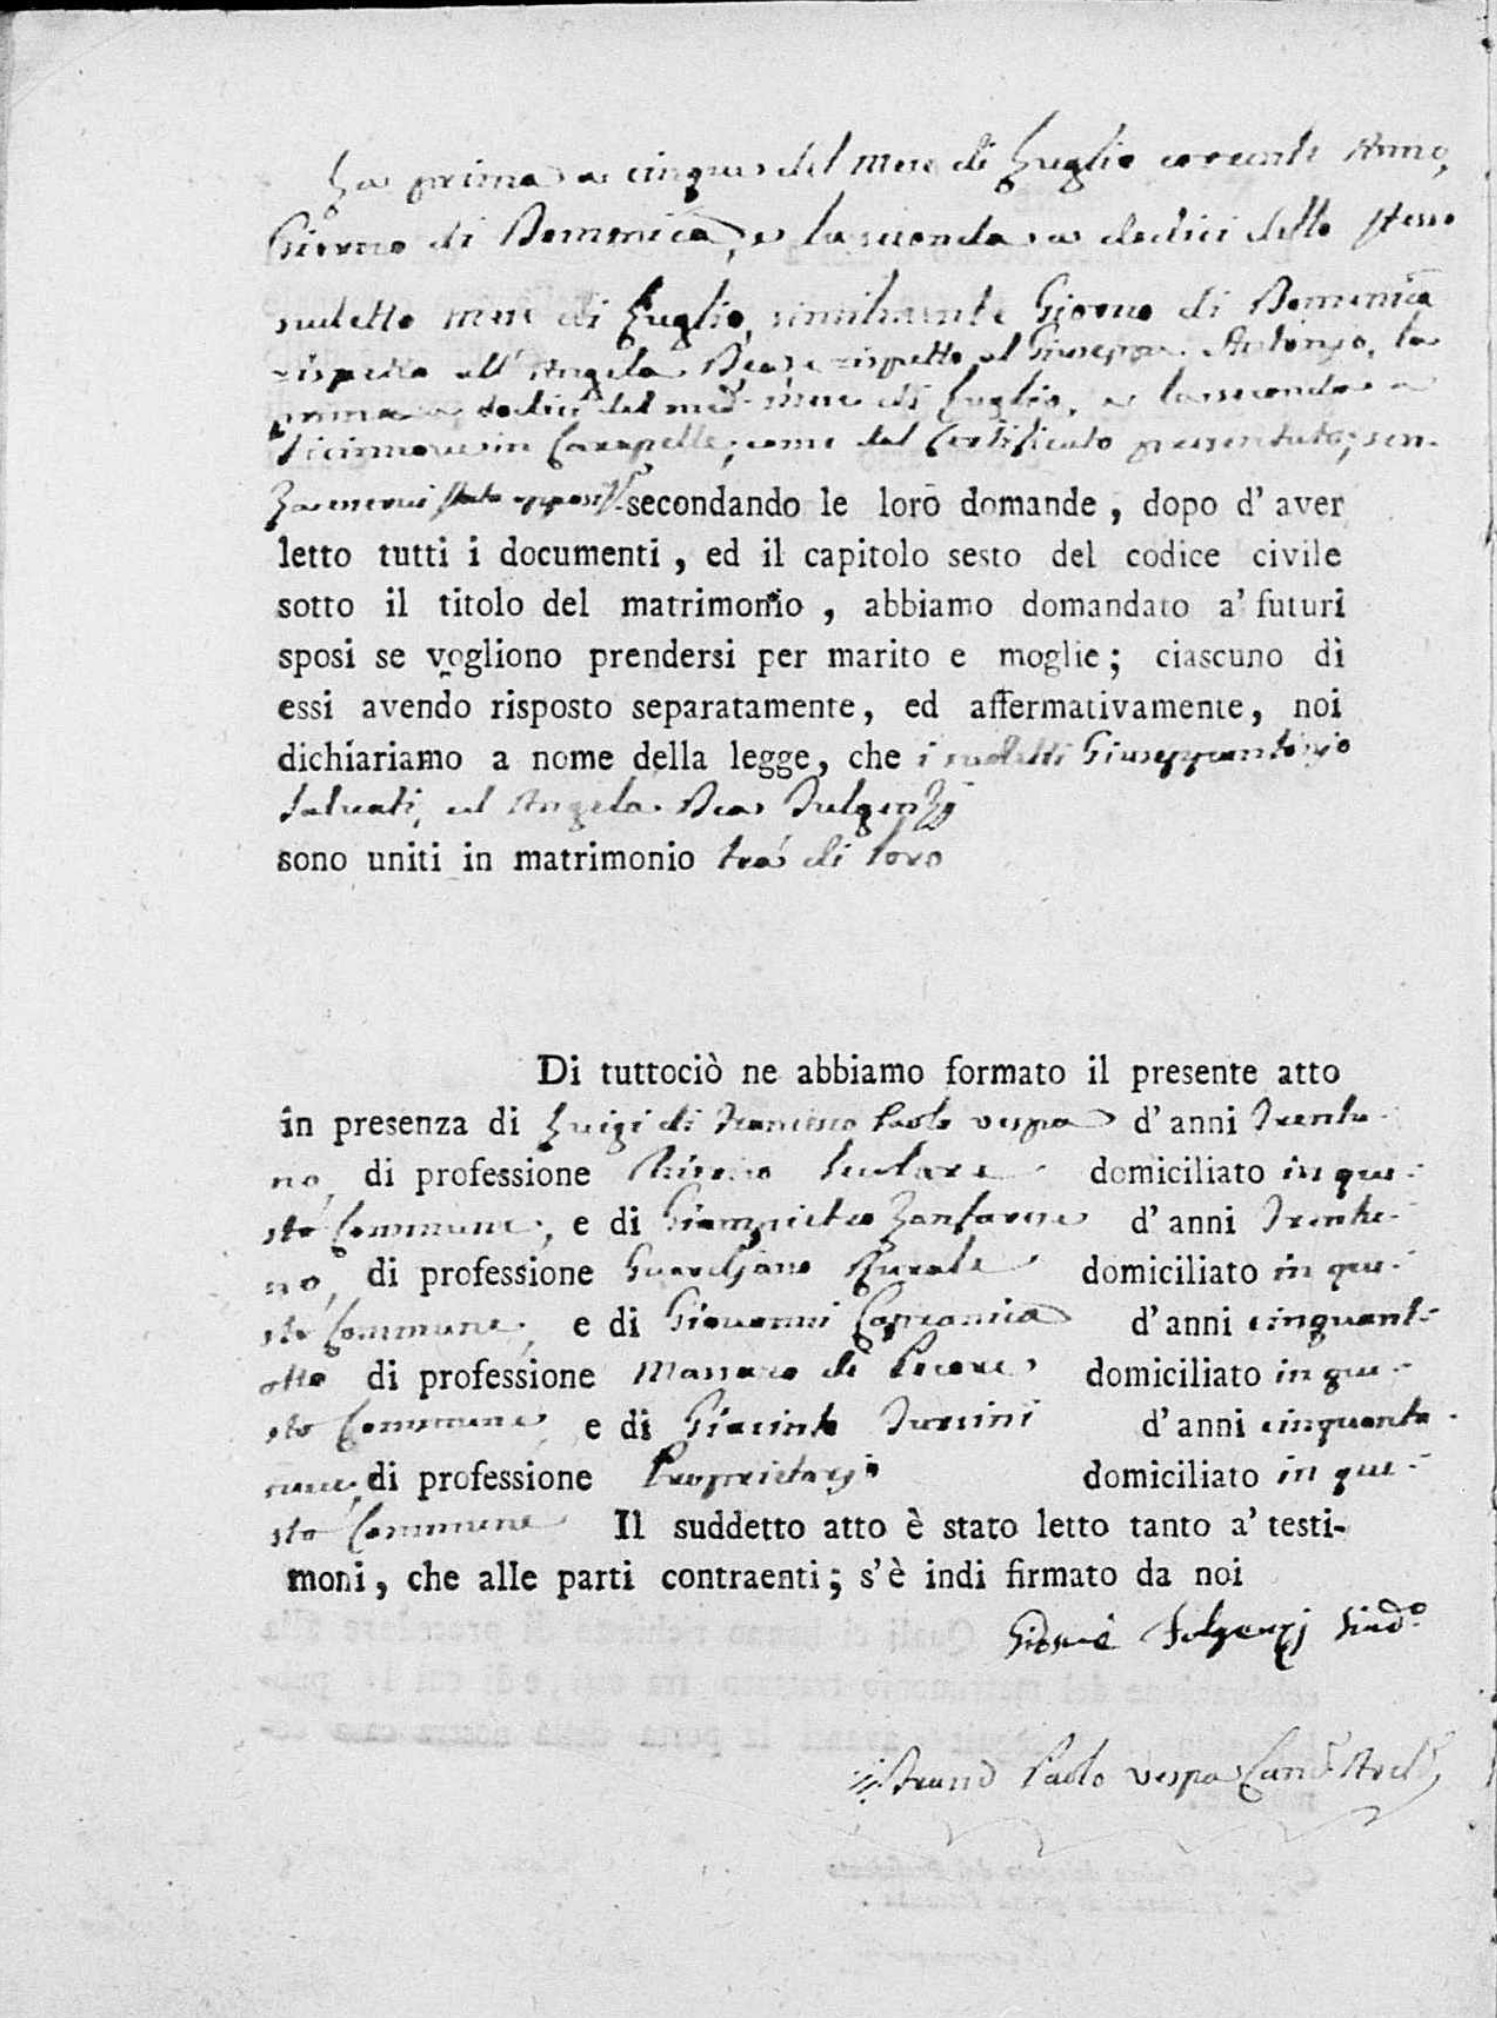 La prima a cinque del mese di Luglio corrente Anno,
Giorno di Domenica, e la seconda a dodici dello stesso
sudetto mese di Luglio, similmente Giorno di Domenica
rispetto all' Angela Rea, e rispetto al Giuseppe Antonio, la
prima a dodici del med.o mese di Luglio, e la seconda a
diciannove in Carapelle, come dal Certificato presentato; sen-
za esservi stata oppos.e secondando le loro domande, dopo d'aver
letto tutti i documenti, ed il capitolo sesto del codice civile
sotto il titolo del matrimonio, abbiamo domandato a' futuri
sposi se vogliono prendersi per marito e moglie; ciascuno di
essi avendo risposto separatamente, ed affermativamente, noi
dichiariamo a nome della legge, che i sudetti Giuseppantonio
Salvati, ed Angela Rea Fulgenzj
sono uniti in matrimonio trà di loro
Di tuttociò ne abbiamo formato il presente atto
in presenza di Luigi di Francesco Paolo Vespa d'anni Trentu-
no, di professione Secolare domiciliato in que-
sto Commune, e di Giampietro Zanfarese d'anni Trentu-
no, di professione Guardjano Rurale domiciliato in que-
sto Commune, e di Giovanni Capranica d'anni cinquant-
otto di professione Massaro di Pecore domiciliato in que-
sto Commune e di Giacinto Sussini d'anni cinquanta
nove, di professione Proprietario domiciliato in que-
sto Commune Il suddetto atto è stato letto tanto a' testi-
moni, che alle parti contraenti; s'è indi firmato da noi
Giosuè Fulgenzj Sind.o
Franc.o Paolo Vespa Canc.e